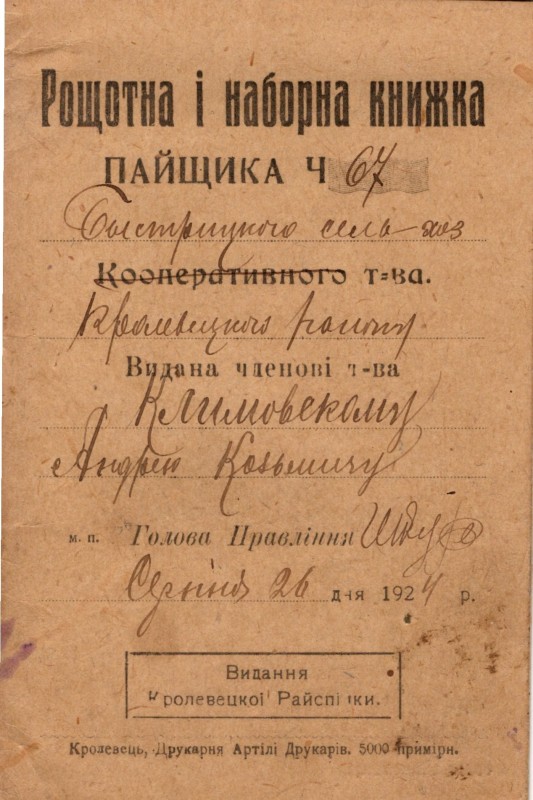 Рощотна і наборна книжка
ПАЙЩИКА Ч 67
Быстрицкого сель-хоз
Кооперативного т-ва.
Кролевецкого району
Видана членові т-ва
Климовскому
Андрею Козьмичу
м. п. Голова Правління
Серпня 26 дня 1924 р.
Видання
Кролевецкої Райспілки.
Кролевець, Друкарня Артілі Друкарів. 5000 примірн.